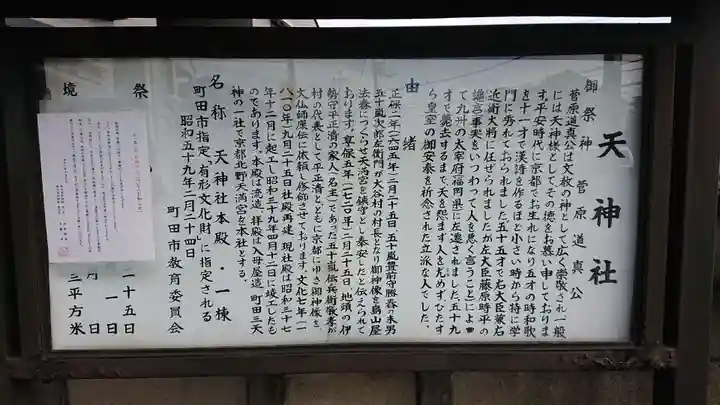 天神社
御祭神 菅原道真公
菅原道真公は文教の神として広く崇敬され一般
には天神様としてその徳をお慕い申しておりま
す。平安時代に京都でお生れになり五才の時和歌
を十一才で漢詩を作るほど小さい時から特に学
門に秀れておられました五十五才で右大臣兼右
近衛大将に任ぜられましたが左大臣藤原時平の
讒言(事実をいつわって人を悪く言うこと)によっ
て九州の太宰府(福岡県)に左遷されました。五十九
才で薨去するまで天を怨まず人を尤めず、ひたす
ら皇室の御安泰を祈念された立派な人でした。
由緒
正保二年(一六四五年)二月二十五日、五十嵐豊前守勝春の末男
五十嵐次郎左衛門が大谷村の村長となり御神像を鳥山屋
法春につくらせ天満宮を鎮守とし奉安したと伝えられて
おります。享保五年(一七二〇年)二月二十五日、地頭の伊
勢守平正清の家人(名主)であった五十嵐伝兵衛敬孝が
村の代表として平正清とともに京都にゆき御神像を
文仏師康伝に依頼し修飾させております。文化七年(一
八一〇年)九月二十五日社殿再建 現社殿は昭和三十七
年十二月に起工し昭和三十九年四月十二日に竣工したも
のであります。本殿は流造、拝殿は入母屋造 町田三天
神の一社で京都北野天満宮を本社とする。
名称 天神社本殿・一棟
町田市指定「有形文化財」に指定される
昭和五十九年二月二十四日
町田市教育委員会
祭
二十五日
一日
月 日
境
三平方米